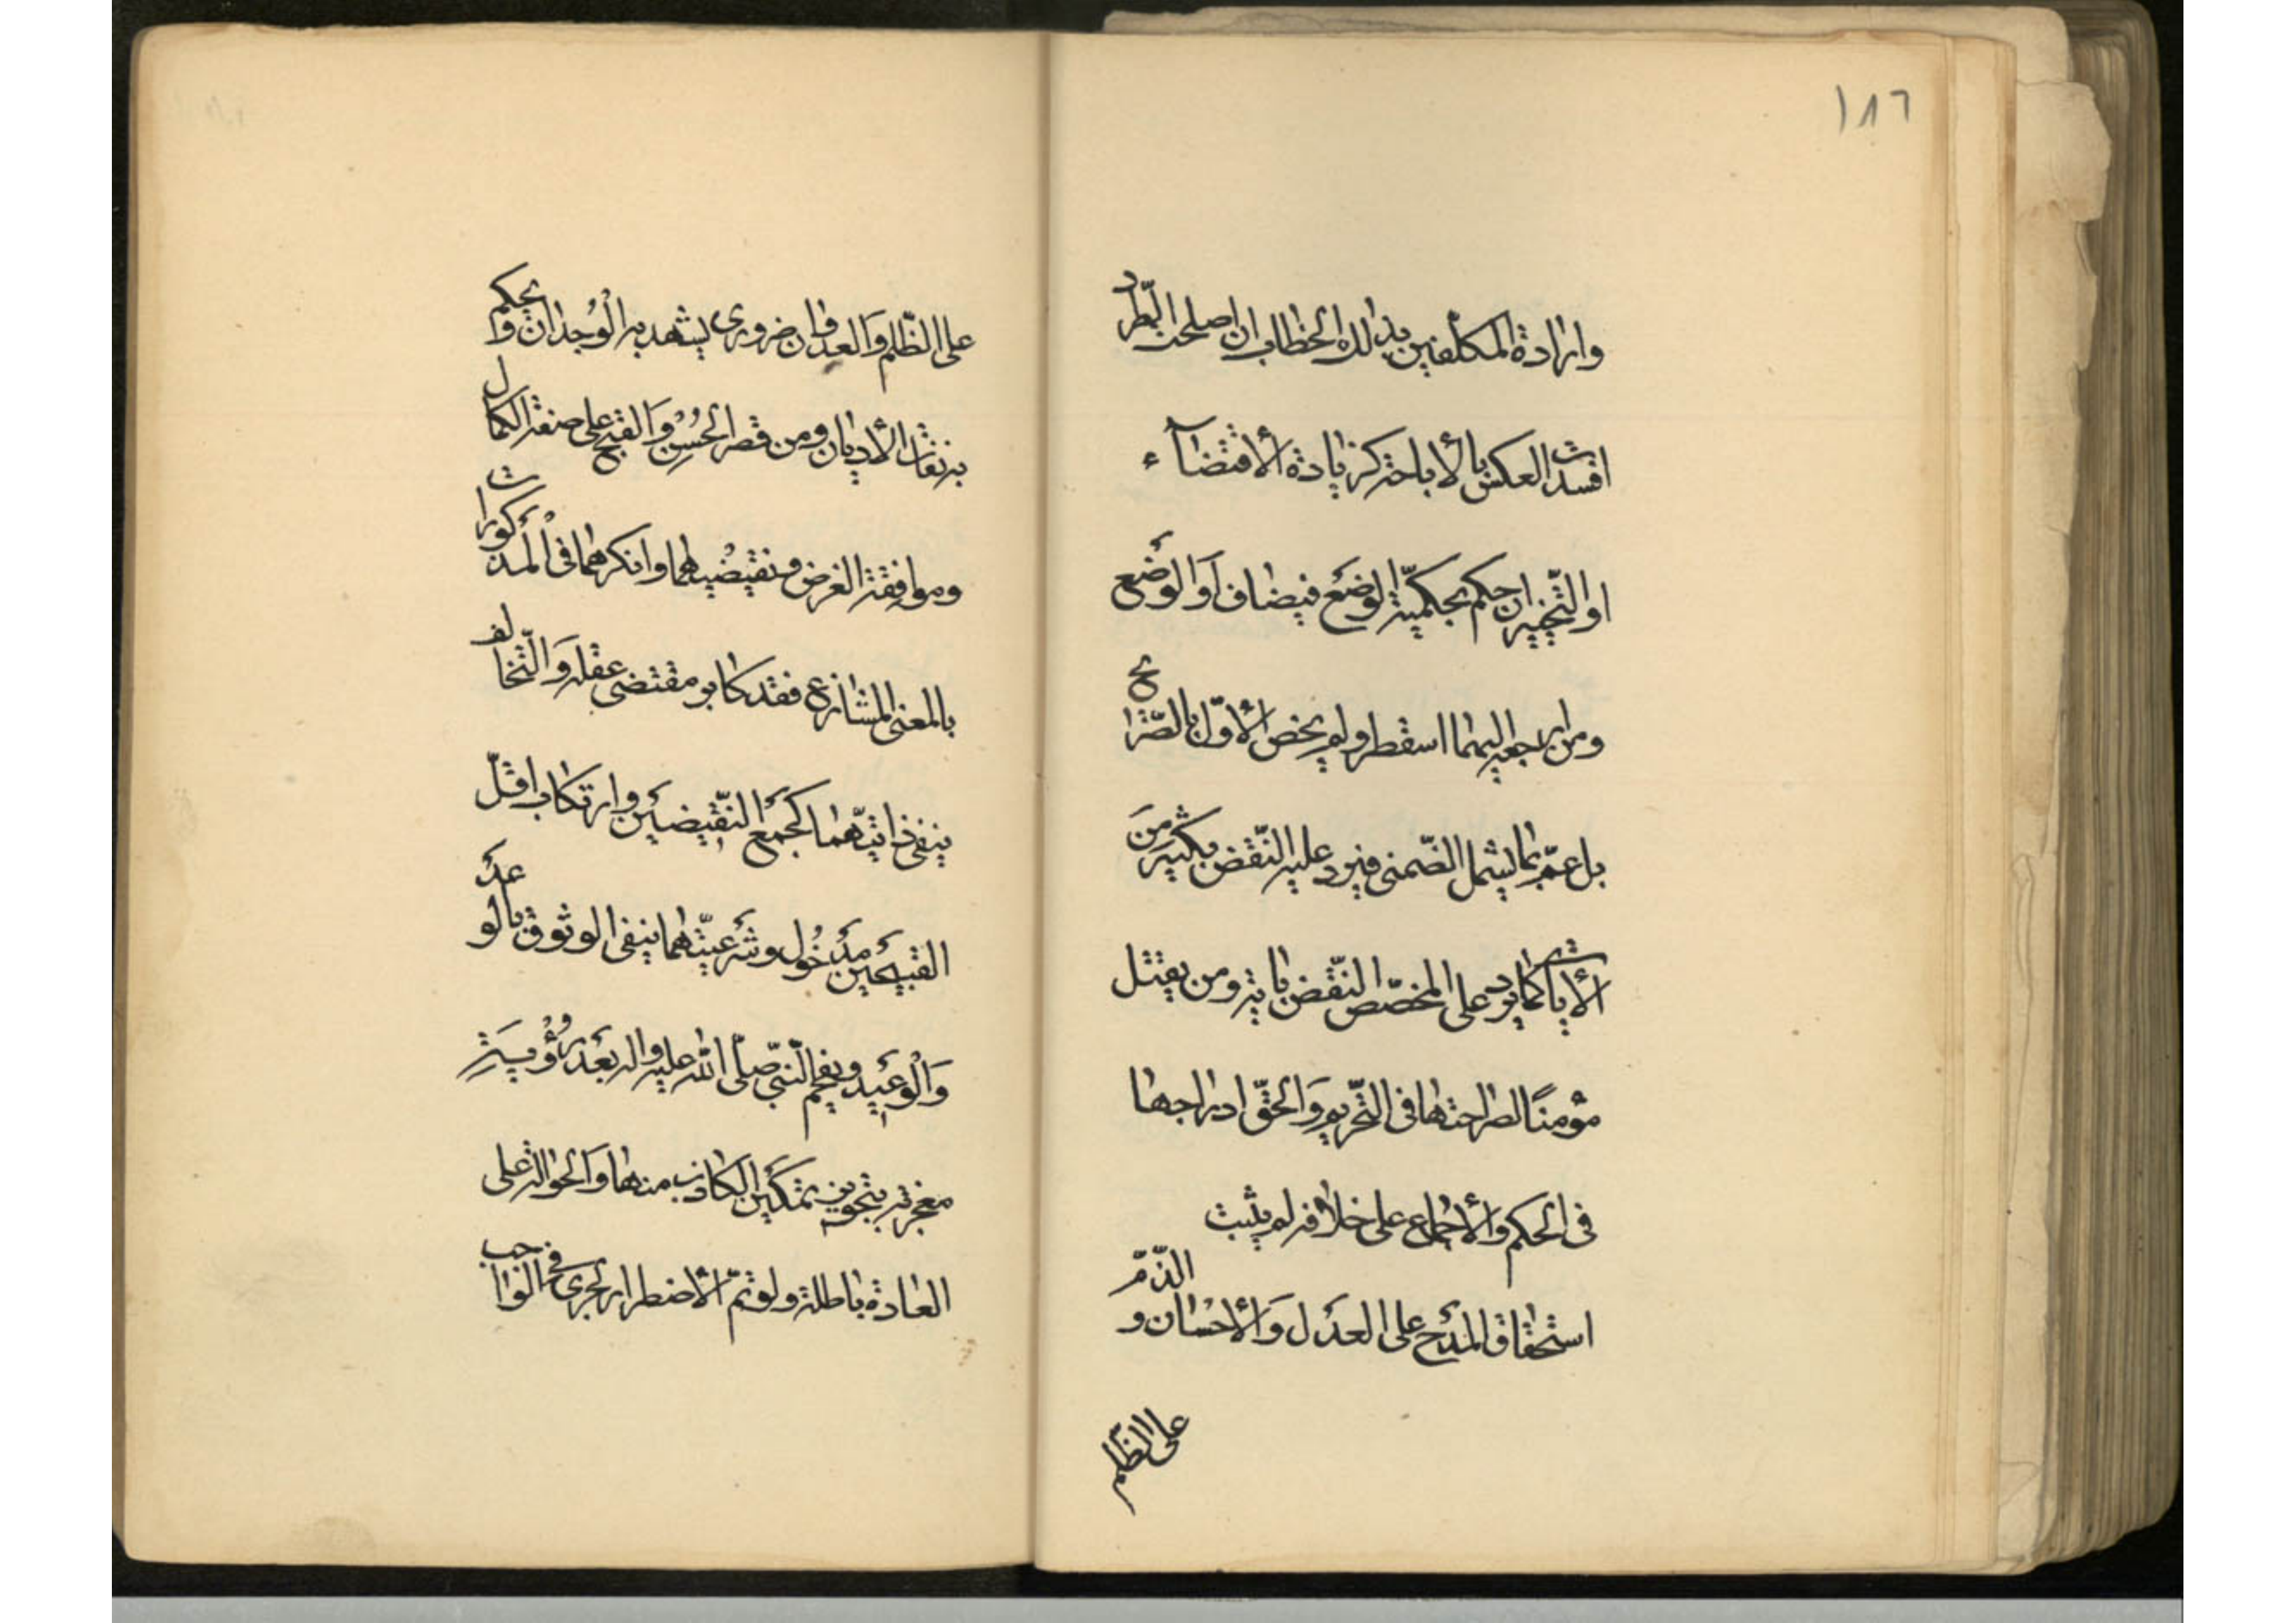 ١٨٦
وارادة المكلّفين بذلك الخطاب ان اصلحت الطّرد
افسدت العكس بالأباحة كزيادة الأقتضآء
او التّخيير ان حكم بحكميّة الوضع فيضاف او الوضع
ومن ارجعه اليهما اسقطه ولم يخص الأوّل بالصّراح
بل عمّه بما يشمل الضّمنى فيرد عليه النّقض بكثير من
الأيات كما يرد على المخصّص النّقض باية ومن يقتل
مؤمنًا لصراحتها فى التّحريم والحقّ ادراجها
فى الحكم والأجماع على خلافه لم يثبت
استحقاق المدح على العدل والأحسان و الذّمّ
على الظّلم
على الظّلم والعدوان ضرورى يشهد به الوجدان و يحكم
به نفات الأديان ومن قصر الحسن والقبح على صفة الكمال
وموافقة الغرض ونقيضيهما وانكرهما فى المذكورات
بالمعنى المتنازع فقد كابر مقتضى عقله والتّخالف
ينفى ذاتيّتهما كجمع النّقيضين وارتكاب اقلّ
القبيحين مدخول وشرعيّتهما ينفى الوثوق بالوعد
والوعيد ويفحم النّبىّ صلّى الله عليه واله بعد رؤية
معجزته بتجويز تمكين الكاذب منها والحوالة على
العادة باطلة ولو تمّ الأضطرار لجرى فى الواجب